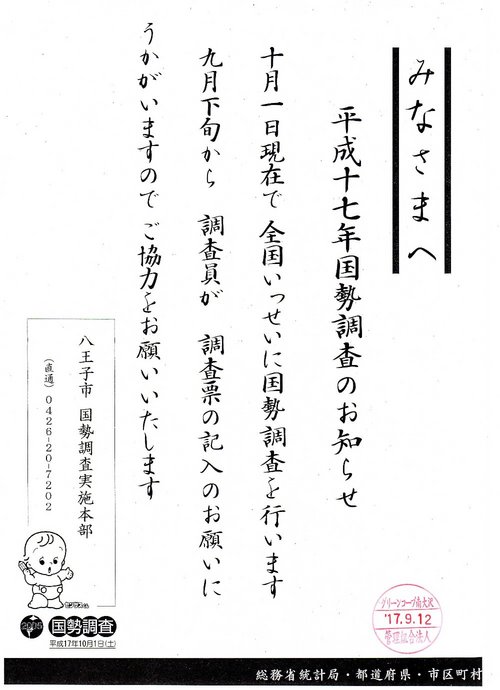 みなさまへ
平成十七年国勢調査のお知らせ
十月一日現在で 全国いっせいに国勢調査を行います
九月下旬から 調査員が 調査票の記入のお願いに
うかがいますので ご協力をお願いいたします
八王子市 国勢調査実施本部
(直通) 0426-20-7202
国勢調査
平成17年10月1日(土)
グリーンコープ南大沢
'17.9.12
管理組合法人
総務省統計局・都道府県・市区町村